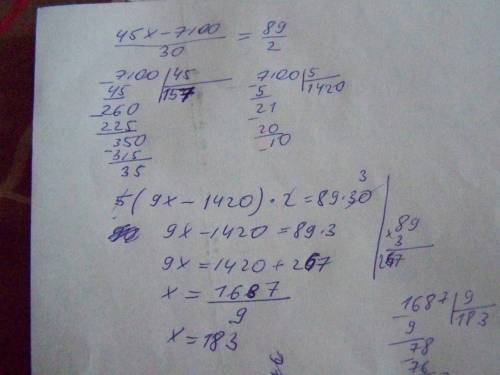 45x - 7100 / 30 = 89 / 2
-7100 | 45
45 | 157
-260
225
-350
-315
35
-7100 | 5
5 | 1420
-21
20
-10
3
5(9x - 1420) · 2 = 89 · 30
9x - 1420 = 89 · 3
9x = 1420 + 267
x = 1687 / 9
x = 183
×89
3
267
-1687 | 9
9 | 183
-78
76